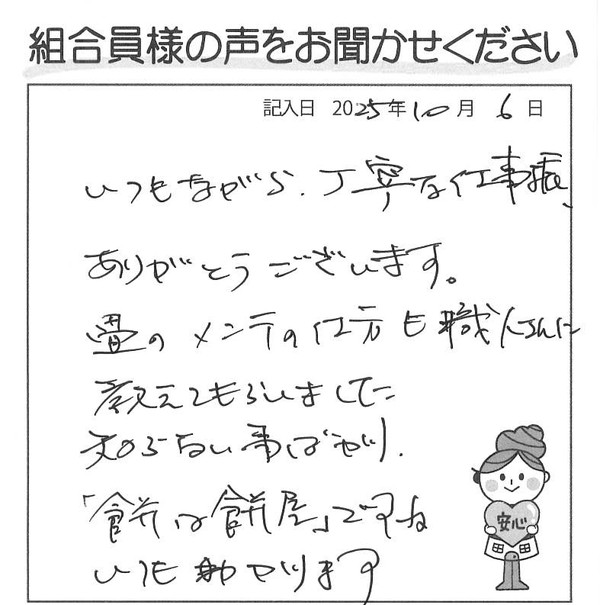 組合員様の声をお聞かせください
記入日 2025年10月6日
いつもながら、丁寧な仕事振、
ありがとうございます。
畳のメンテの仕方も職人さんに
教えてもらいました
知らない事ばかり.
「餅は餅屋」ですね
いつも助かります
安心